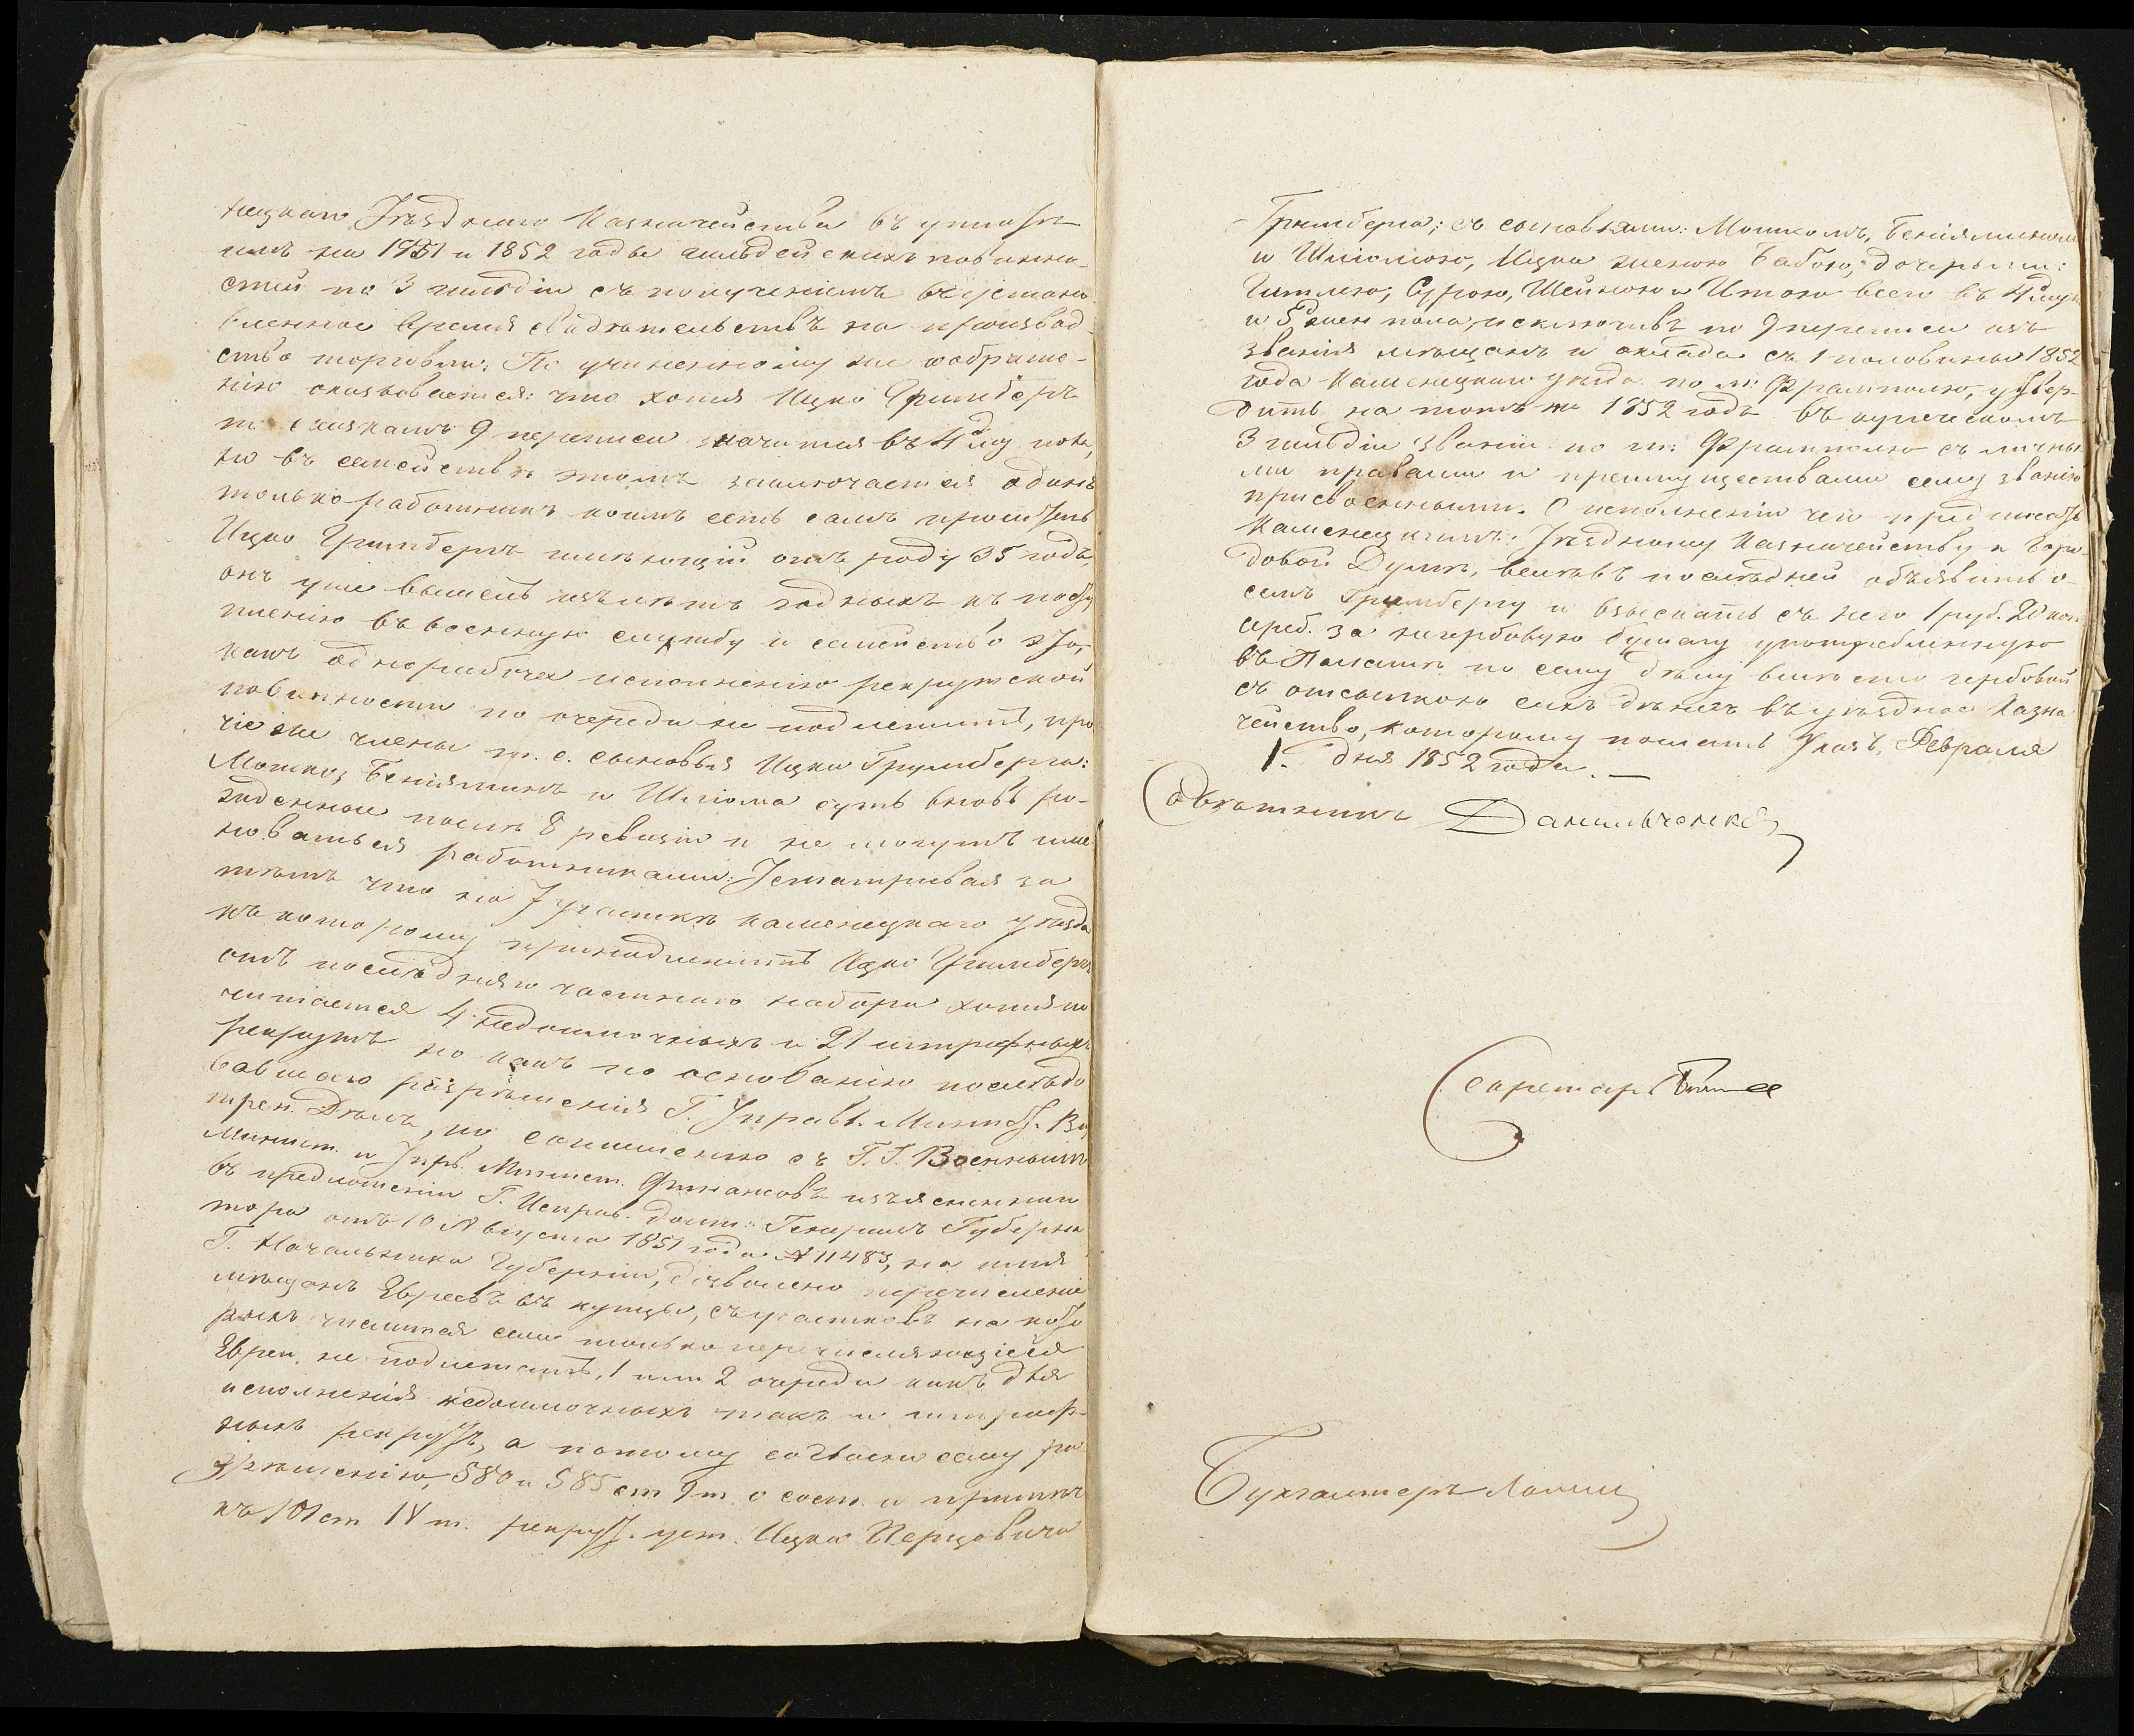 нецкаго Уѣзднаго Казначейства въ уплатѣ
имъ на 1851 и 1852 годы гильдейскихъ повинно-
стей по 3 гильдіи съ полученіемъ въ устано-
вленное время свидѣтельствъ на производ-
ство торговли; По учиненному же соображе-
нію оказывается: что хотя Ицко Гримбергъ
по сказкамъ 9 переписи значится въ 4 муж. пола,
но въ семействѣ этомъ заключается одинъ
только работникъ коимъ есть самъ проситель
Ицко Гримбергъ имѣющій отъ роду 35 годъ,
онъ уже вышелъ изъ лѣтъ годныхъ къ посту
пленію въ военную службу и семейство это,
какъ однорабочее исполненію рекрутской
повинности по очереди не подлежитъ, про
чіе же члены т. е. сыновья Ицка Гримберга:
Мошко, Беніяминъ и Шліома суть вновь ро-
жденные послѣ 8 ревизіи и не могутъ име
новаться работниками; Усматривая за
тѣмъ что на 7 участкѣ Каменецкаго уѣзда
къ которому принадлежитъ Ицко Гримбергъ
отъ послѣдняго частнаго набора хотя и
считается 4 недоимочныхъ и 21 штрафныхъ
рекрутъ но какъ по основанію послѣдо
вавшаго разрѣшенія Г. Управл. Минист. Вну
трен. Дѣлъ, по сношенію съ Г. Г. Военнымъ
Минист. и Упр. Минист. Финансовъ изъясненнаго
въ предложеніи Г. Исправ. долж. Генералъ Губерна
тора отъ 10 Августа 1851 года № 11483, на имя
Г. Начальника Губерніи, дозволено перечисленіе
мѣщанъ Евреевъ въ купцы, съ участковъ на кото
рыхъ числится если только перечисляющіеся
Евреи не подлежатъ, 1 или 2 очереди какъ для
исполненія недоимочныхъ такъ и штраф-
ныхъ рекрутъ, а потому согласно сему ра
зрѣшенію, 580 и 585 ст 9 т. о сост. и примѣч
къ 101 ст IV т. рекрут. уст. Ицка Перцовича
Гримберга; съ сыновьями: Мошкомъ, Беніяминомъ
и Шліомою, Ицка женою Бабою, дочерьми:
Гитлею, Сурою, Шейною и Итою всего въ 4 муж
и 5 жен пола, исключивъ по 9 переписи изъ
званія мѣщанъ и оклада съ 1 половины 1852
года Каменецкаго уѣзда по м: Фрамполю, утвер-
дить на тотъ же 1852 годъ въ купеческомъ
3 гильдіи званіи по м: Фрамполю съ личны
ми правами и преимуществами сему званію
присвоенными. О исполненіи чего предписать
Каменецкимъ: Уѣздному Казначейству и Горо-
довой Думѣ, велѣвъ послѣдней объявить о
семъ Гримбергу и взыскать съ него 1 руб. 20 коп
сереб. за негербовую бумагу употребленную
въ Палатѣ по сему дѣлу вмѣсто гербовой
съ отсылкою сихъ денегъ въ уѣздное Казна
чейство, которому послать Указъ, Февраля
1. дня 1852 года. —
Совѣтникъ Данильченко
Секретарь
Бухгалтеръ